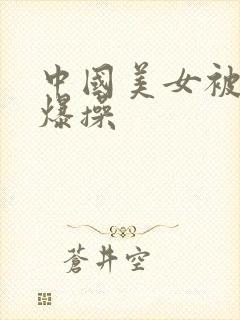 中國美女被
爆操
蒼井空